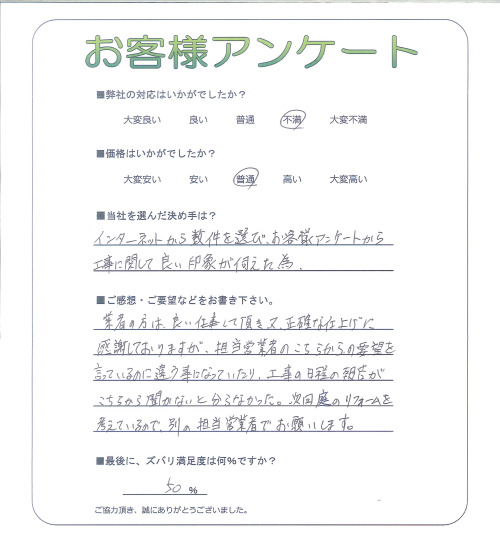 お客様アンケート
■弊社の対応はいかがでしたか？
大変良い 良い 普通 不満 大変不満
■価格はいかがでしたか？
大変安い 安い 普通 高い 大変高い
■当社を選んだ決め手は？
インターネットから数件を選び、お客様アンケートから
工事に関して良い印象が伺えた為、
■ご感想・ご要望などをお書き下さい。
業者の方は、良い仕事して頂き又、正確な仕上げに
感謝しておりますが、担当営業者のこちらからの要望を
言っているのに違う事になっていたり、工事の日程の報告が
こちらから聞かないと分らなかった。次回庭のリフォームを
考えているので、別の担当営業者でお願いします。
■最後に、ズバリ満足度は何%ですか？
50 %
ご協力頂き、誠にありがとうございました。